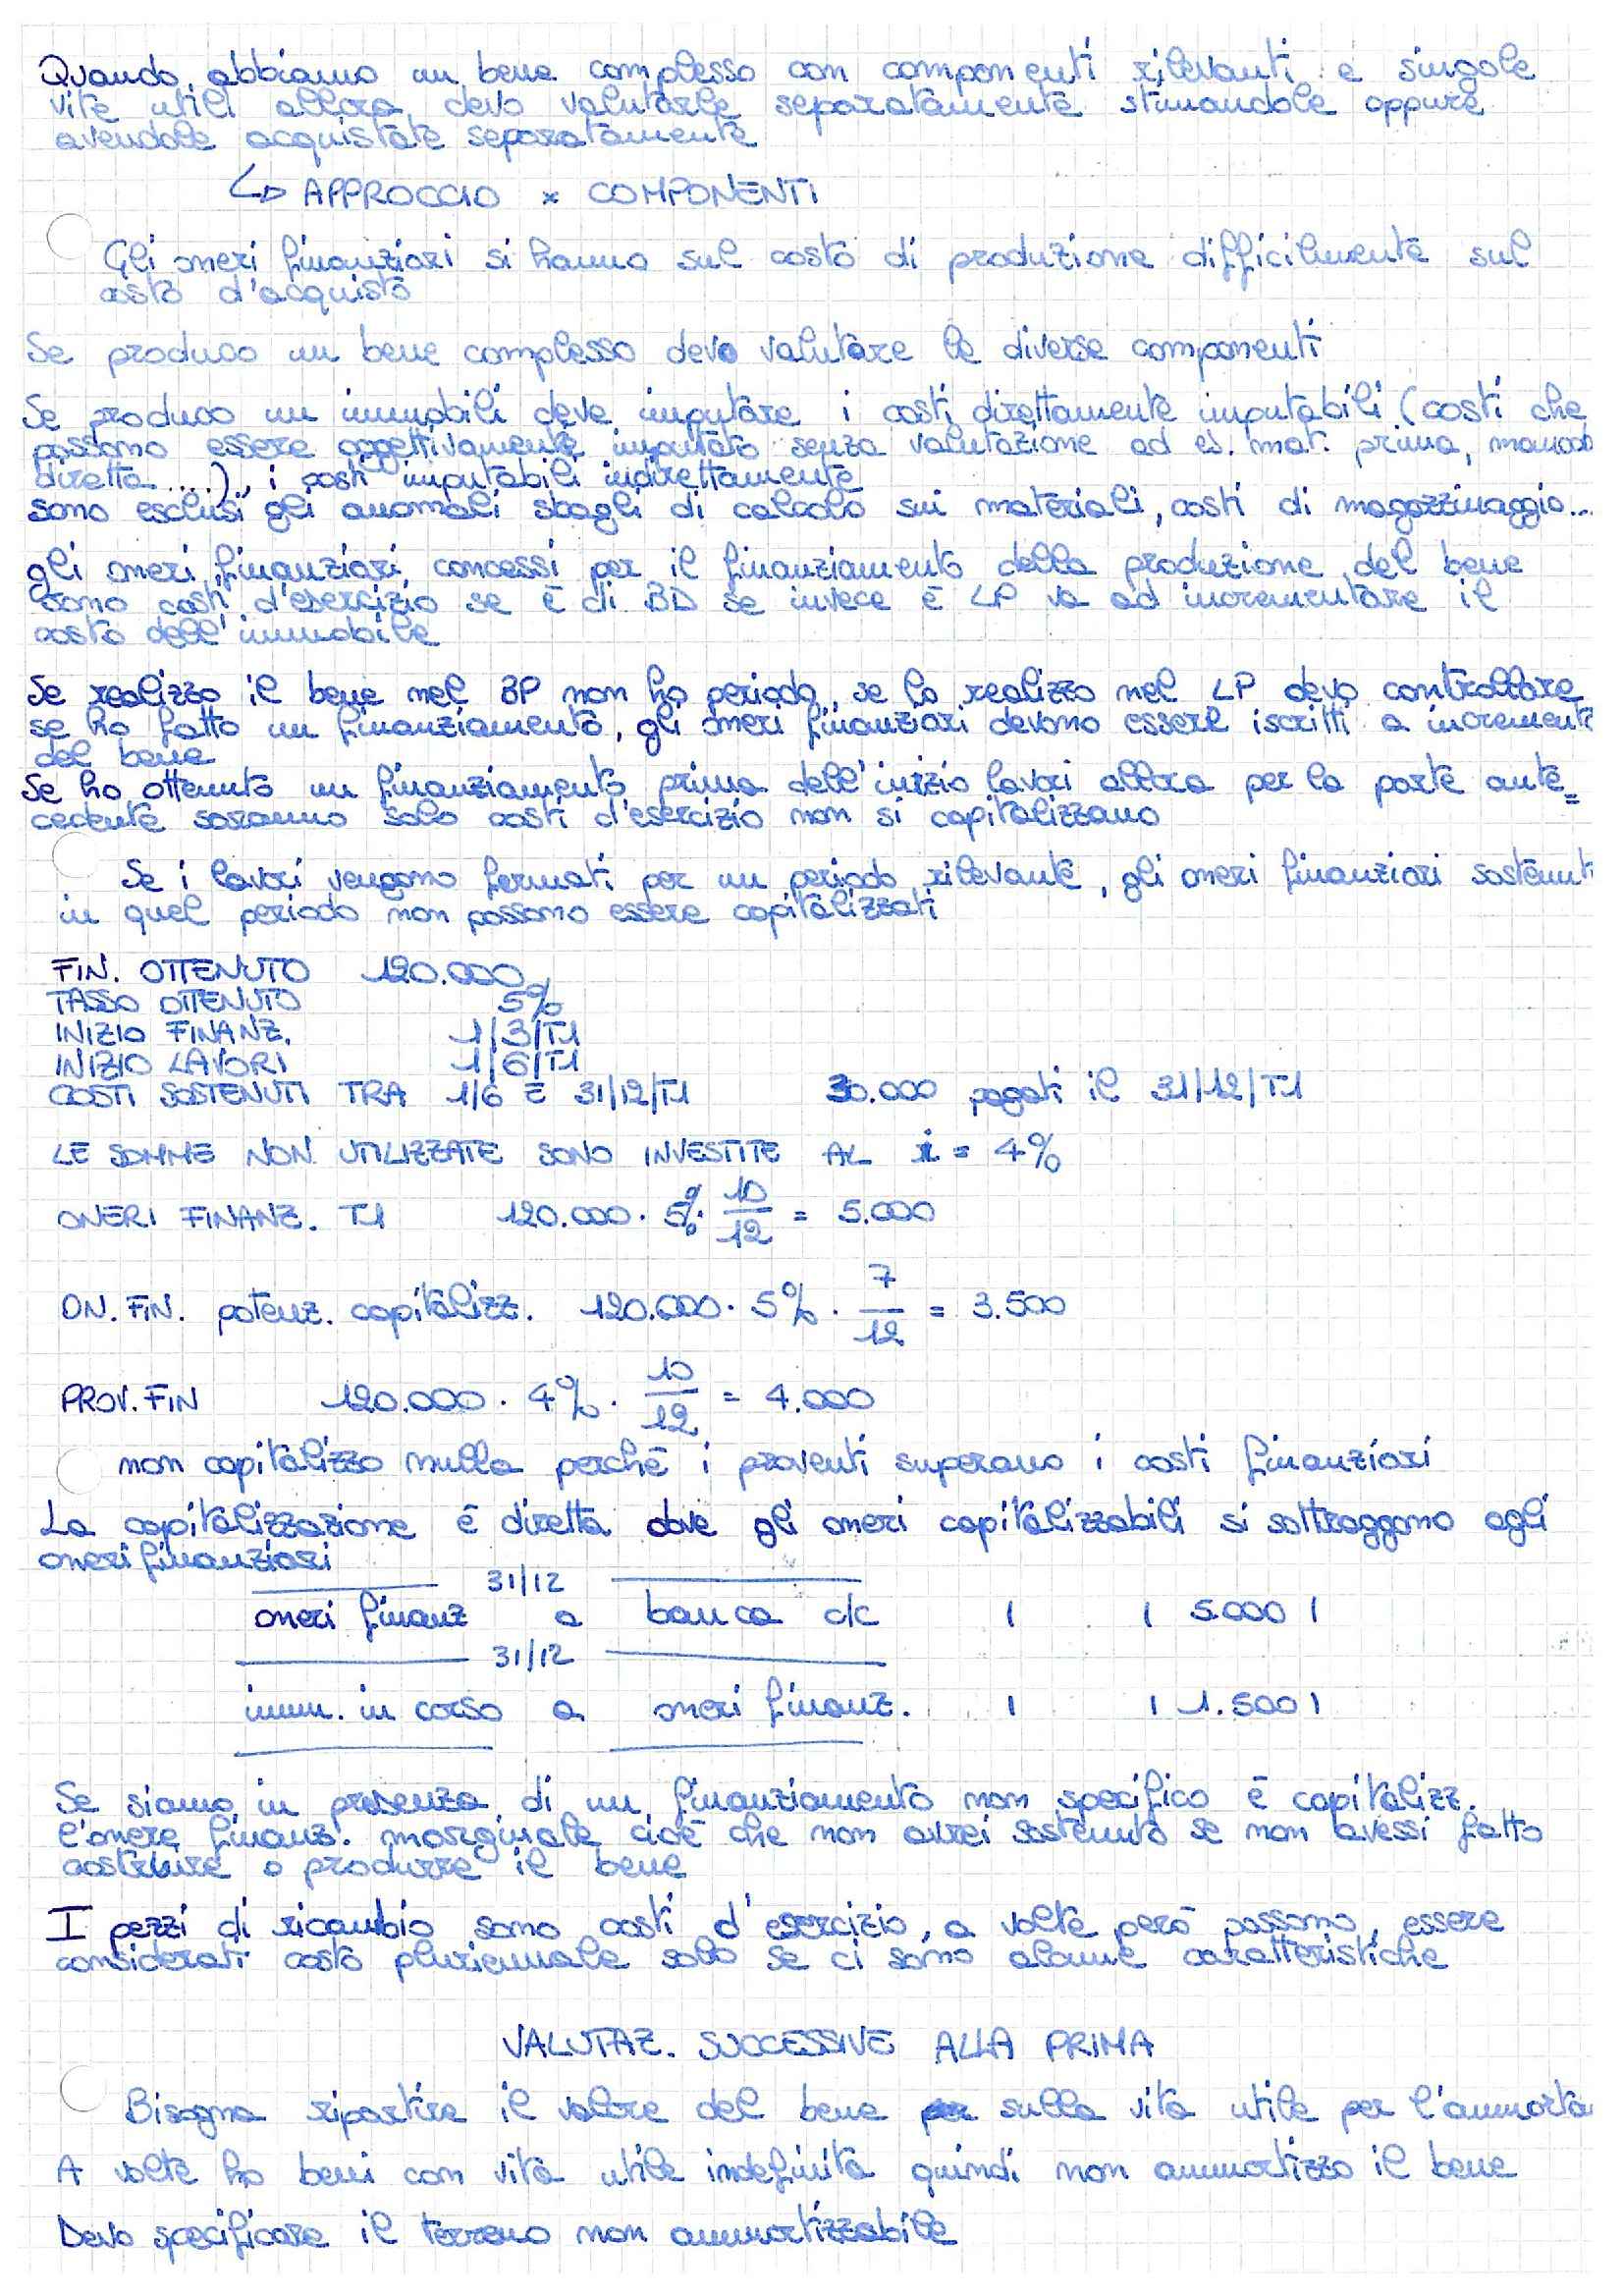 Quando abbiamo un bene complesso con componenti rilevanti e singole
vite utili allora devo valutarle separatamente stimandole oppure
avendole acquistate separatamente
↳ APPROCCIO x COMPONENTI
Gli oneri finanziari si hanno sul costo di produzione difficilmente sul
costo d'acquisto
Se produco un bene complesso devo valutare le diverse componenti
Se produco un immobili deve imputare i costi direttamente imputabili (costi che
possono essere oggettivamente imputato senza valutazione ad es. mat. prima, manod
diretta ....), i costi imputabili indirettamente
sono esclusi gli anomali sbagli di calcolo sui materiali, costi di magazzinaggio...
gli oneri finanziari concessi per il finanziamento della produzione del bene
sono costi d'esercizio se è di BD se invece è LP va ad incrementare il
costo dell'immobile
Se realizzo il bene nel BP non ho periodo, se lo realizzo nel LP devo controllare
se ho fatto un finanziamento, gli oneri finanziari devono essere iscritti a incrementi
del bene
Se ho ottenuto un finanziamento prima dell'inizio lavori allora per la parte ante=
cedente saranno solo costi d'esercizio non si capitalizzano
Se i lavori vengono fermati per un periodo rilevante, gli oneri finanziari sostenuti
in quel periodo non possono essere capitalizzati
FIN. OTTENUTO 120.000
TASSO OTTENUTO 5%
INIZIO FINANZ. 1/3/T1
INIZIO LAVORI 1/6/T1
COSTI SOSTENUTI TRA 1/6 E 31/12/T1 30.000 pagati il 31/12/T1
LE SOMME NON UTILIZZATE SONO INVESTITE AL i = 4%
ONERI FINANZ. T1 120.000 · 5% · 10/12 = 5.000
ON. FIN. potenz. capitalizz. 120.000 · 5% · 7/12 = 3.500
PROV. FIN 120.000 · 4% · 10/12 = 4.000
non capitalizzo nulla perché i proventi superano i costi finanziari
La capitalizzazione è diretta dove gli oneri capitalizzabili si sottraggono agli
oneri finanziari
31/12
oneri finanz a banca c/c | | 5.000 |
31/12
imm. in corso a oneri finanz. | | 1.500 |
Se siamo in presenza di un finanziamento non specifico è capitalizz.
l'onere finanz. marginale cioè che non avrei sostenuto se non avessi fatto
costruire o produrre il bene
I pezzi di ricambio sono costi d'esercizio, a volte però possono essere
considerati costo pluriennale solo se ci sono alcune caratteristiche
VALUTAZ. SUCCESSIVE ALLA PRIMA
Bisogna ripartire il valore del bene sulla vita utile per l'ammorta
A volte ho beni con vita utile indefinita quindi non ammortizzo il bene
Devo specificare il terreno non ammortizzabile